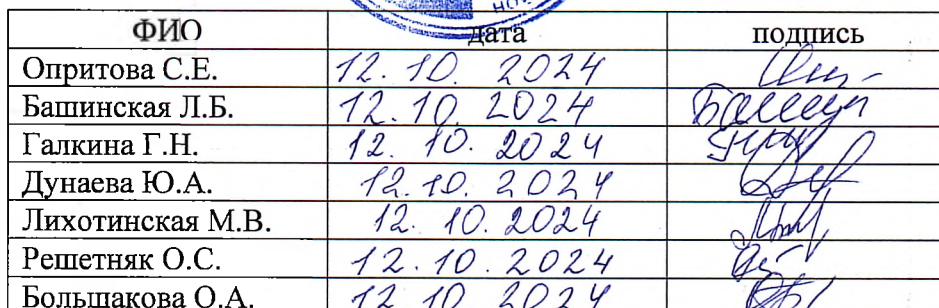 ФИО дата подпись
Опритова С.Е. 12.10. 2024
Башинская Л.Б. 12.10. 2024
Галкина Г.Н. 12. 10. 2024
Дунаева Ю.А. 12.10. 2024
Лихотинская М.В. 12. 10. 2024
Решетняк О.С. 12.10.2024
Большакова О.А. 12 10 2024